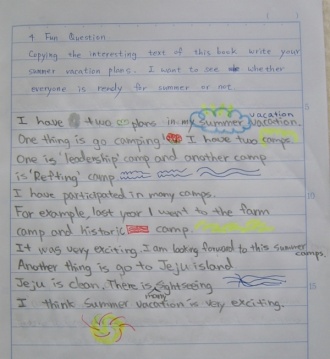 4 Fun Question
Copying the interesting text of this book write your
summer vacation plans. I want to see whether
everyone is ready for summer or not.
I have two plans in my summer vacation.
One thing is go camping! I have two camps.
One is 'leadership' camp and another camp
is 'Refting' camp
I have participated in many camps.
For example, last year I went to the farm
camp and historic camp.
It was very exciting. I am looking forward to this summer
camps.
Another thing is go to Jeju island
Jeju is clean. There is many sightseeing
I think summer vacation is very exciting.